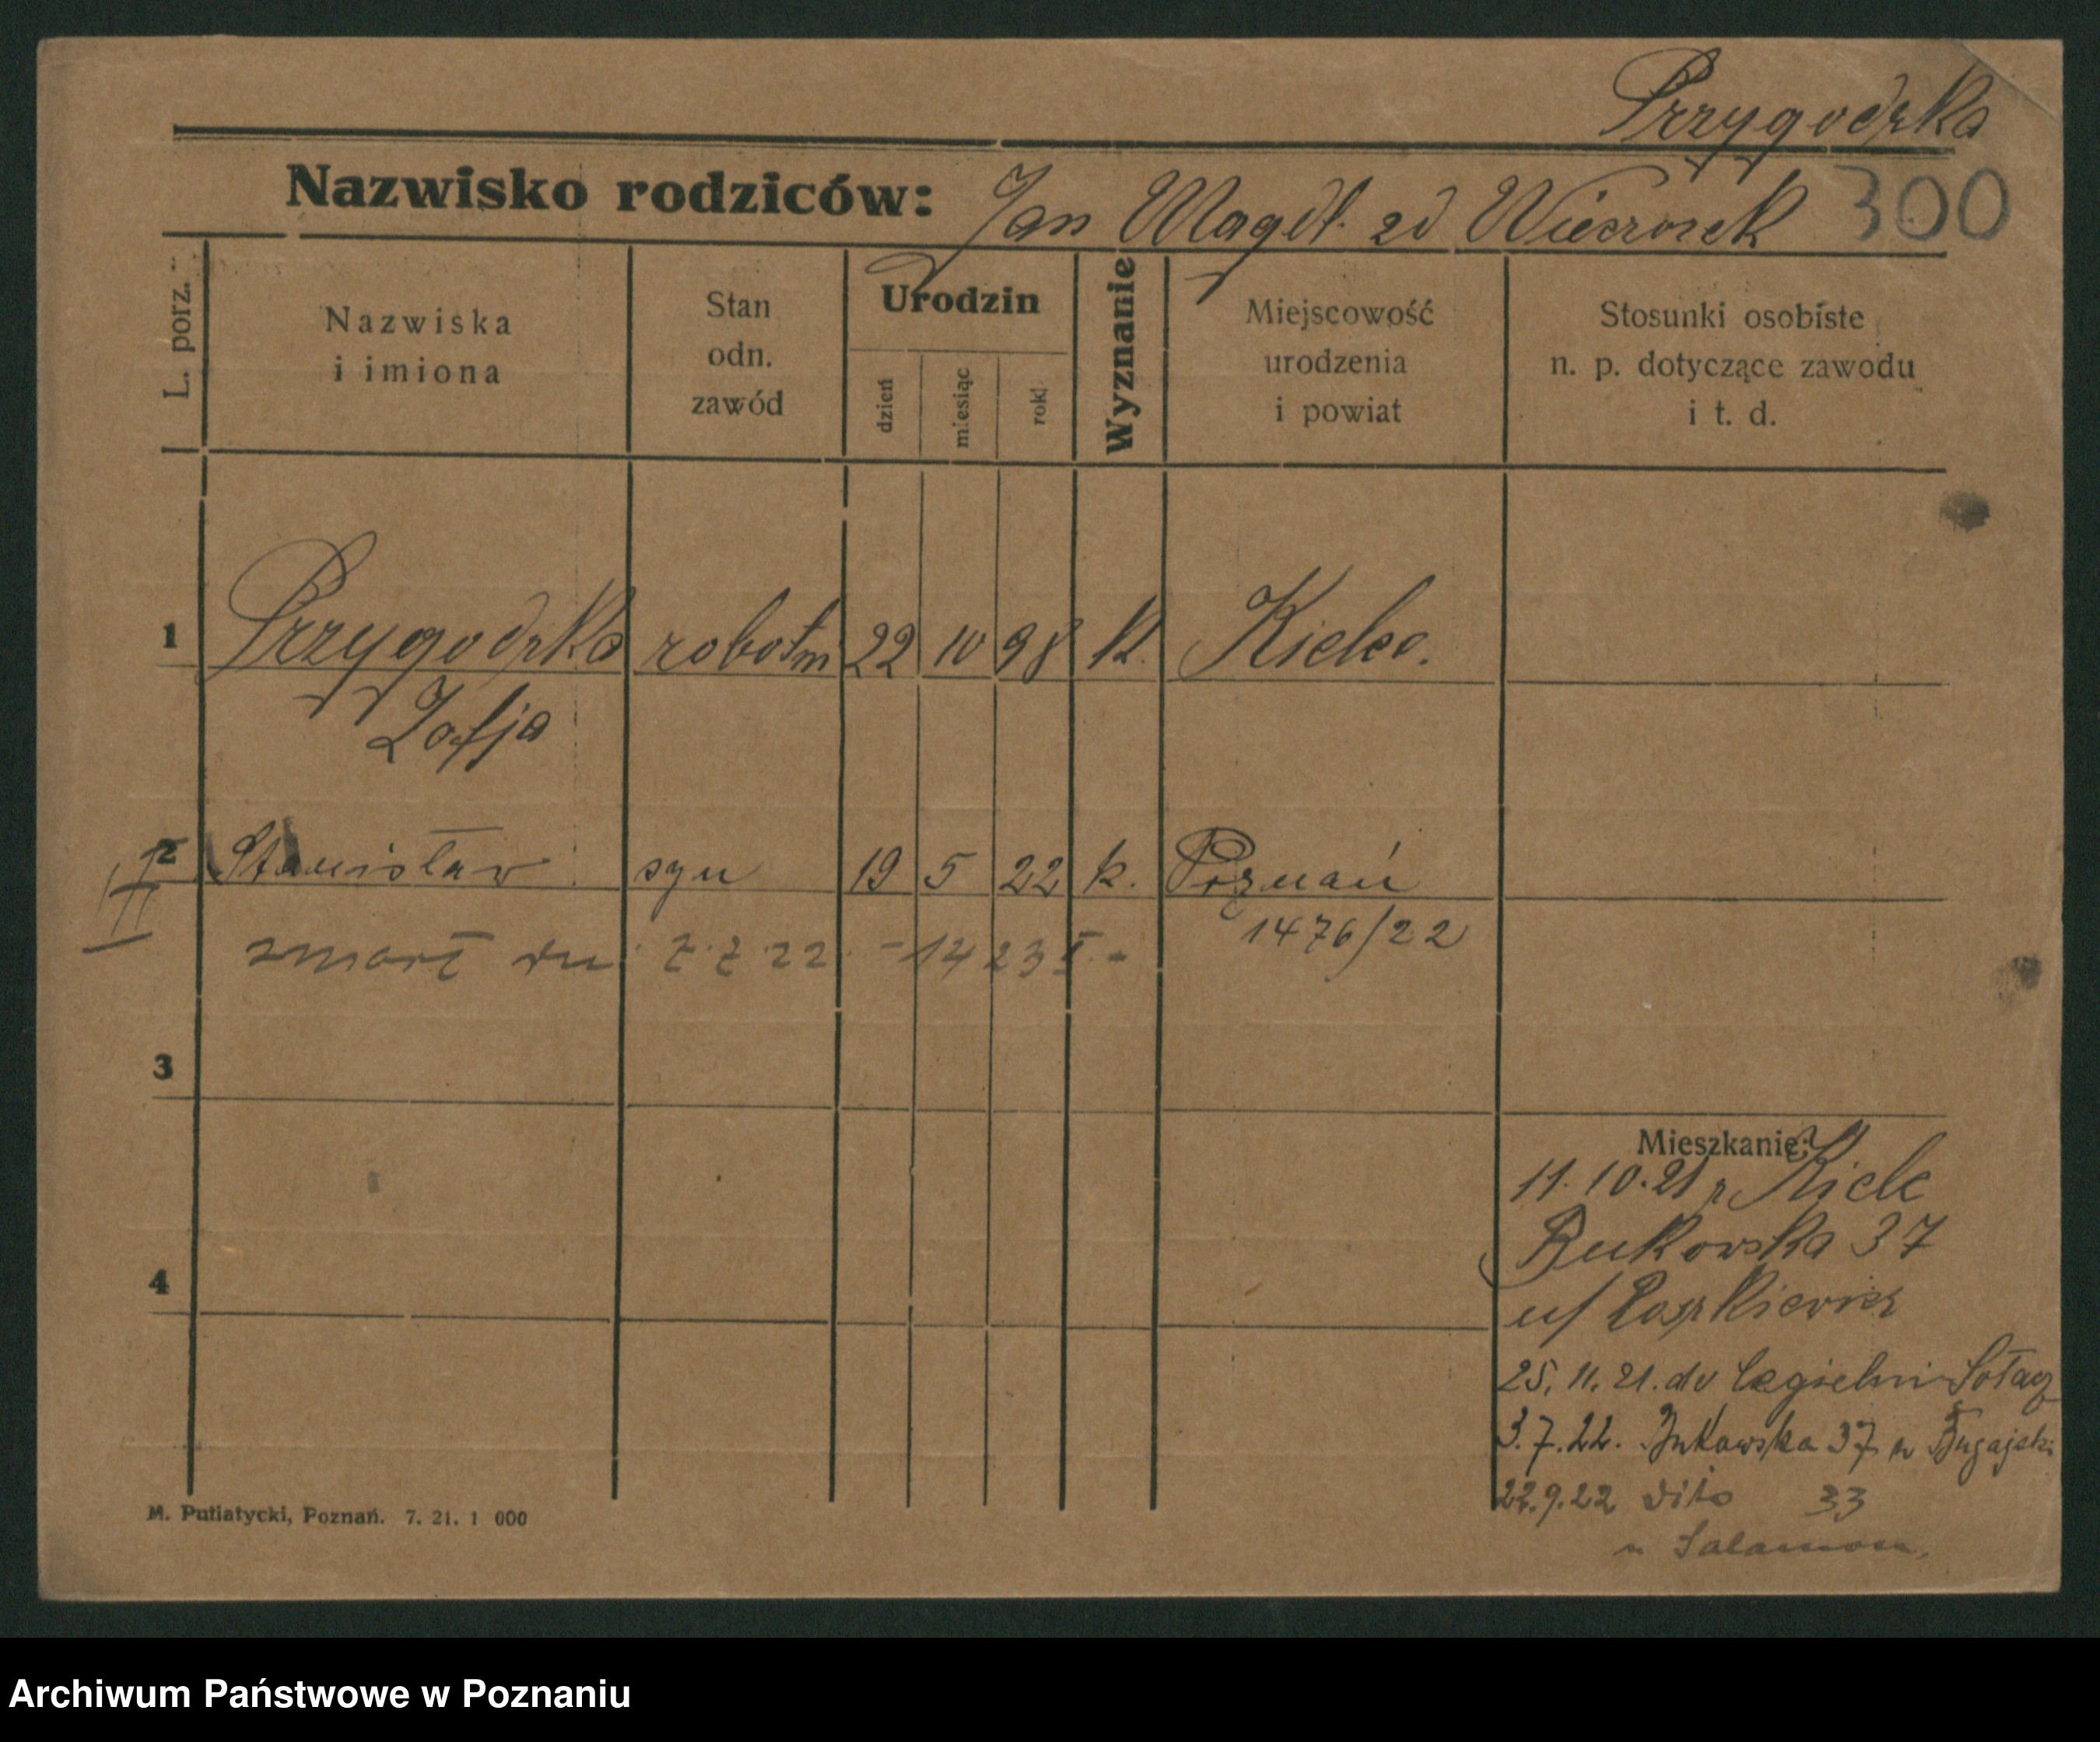 Przygodzka
Nazwisko rodziców: Jan Magdl. zd Wieczorek 300
L. porz.
Nazwiska
i imiona
Stan
odn.
zawód
Urodzin
dzień
miesiąc
rok
Wyznanie
Miejscowość
urodzenia
i powiat
Stosunki osobiste
n. p. dotyczące zawodu
i t. d.
1 Przygodzka robotn 22 10 98 k. Kielce.
Zofja
2 Stanisław syn 19 5 22 k. Poznań
1476/22
zmarł dn. 22 - 14 23
3
4
Mieszkanie:
11.10.21 z Kielc
Bukowska 37
u/ Paszkiewicz
25.11.21. do Cegielni Sołacz
3.7.22. Bukowska 37 u Bugajski
22.9.22 dito 33
u Salamon,
M. Putiatycki, Poznań. 7. 21. 1 000
Archiwum Państwowe w Poznaniu